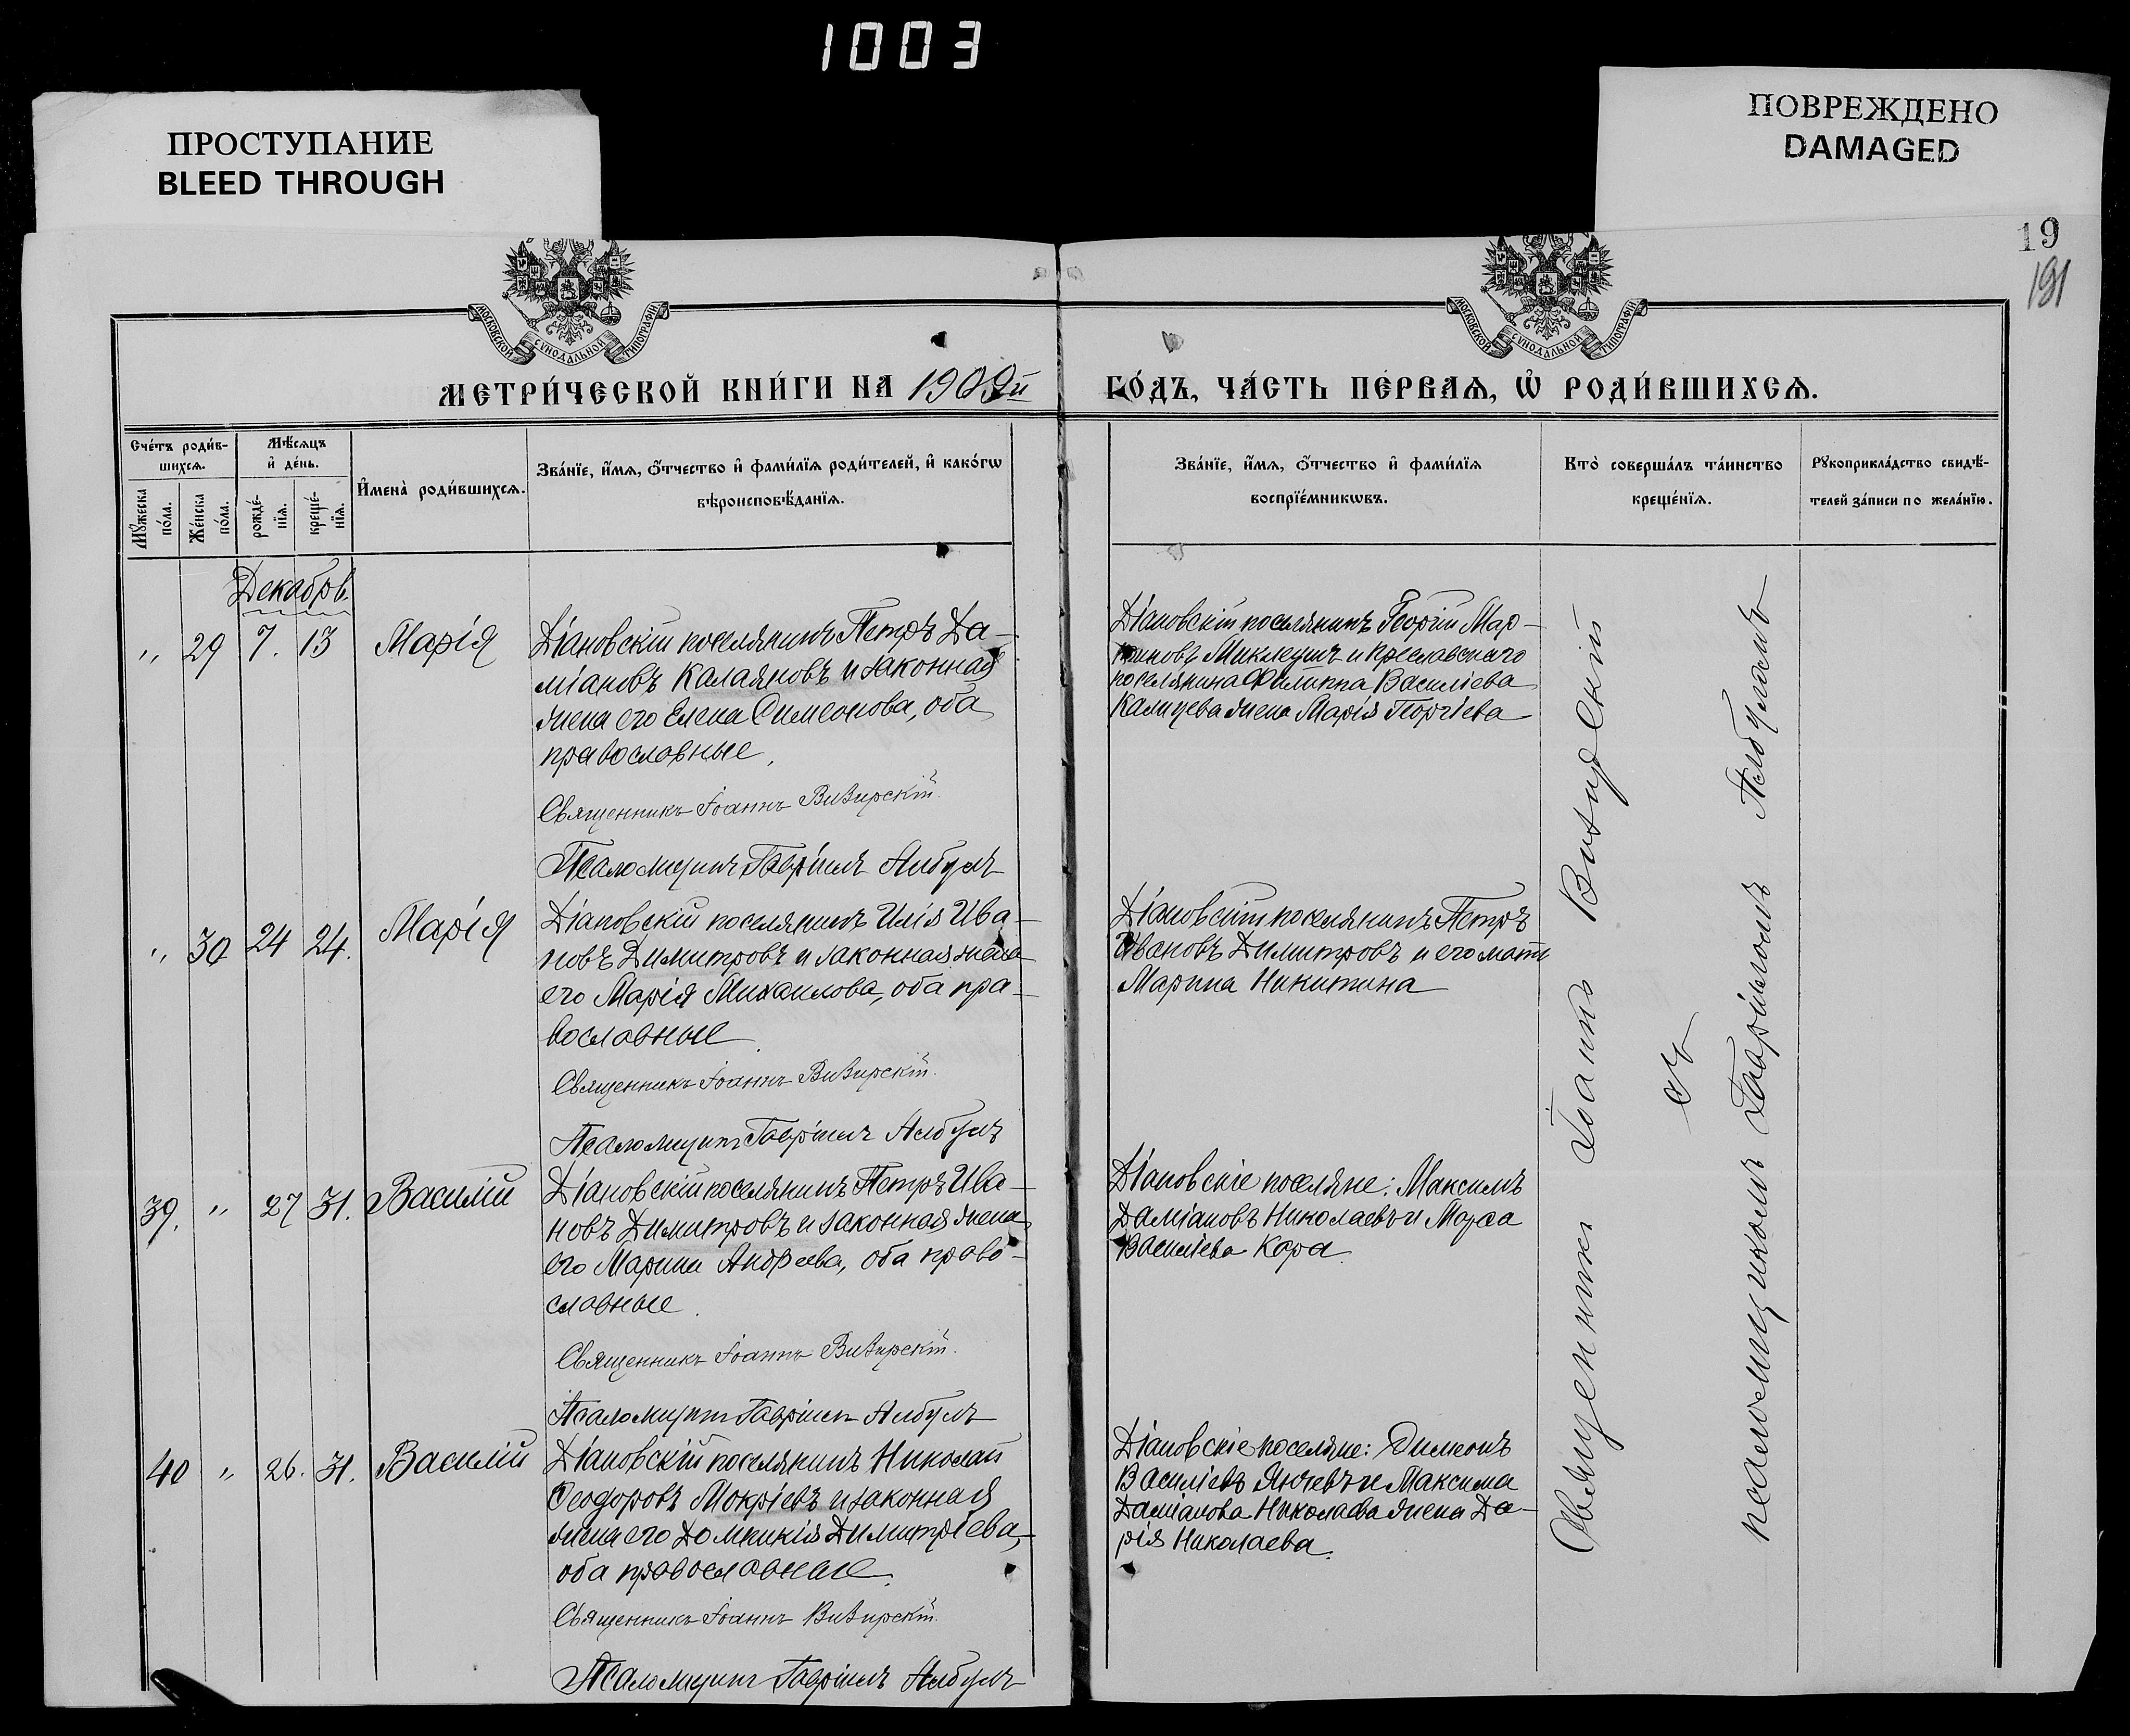 1003
ПРОСТУПАНИЕ
BLEED THROUGH
ПОВРЕЖДЕНО
DAMAGED
19
191
МОСКОВСКОЙ СУНОДАЛЬНОЙ ТИПОГРАФІИ
МОСКОВСКОЙ СУНОДАЛЬНОЙ ТИПОГРАФІИ
МЕТРИ́ЧЕСКОЙ КНИ́ГИ НА 1909й ГО́ДЪ, ЧА́СТЬ ПЕ́РВАѦ, Ѡ҆ РОДИ́ВШИХСѦ.
Сче́тъ роди́в-
шихсѧ.
Мѣ́сѧцъ
и҆ де́нь.
Мꙋ́жеска
по́ла.
Же́нска
по́ла.
рожде́-
нїѧ.
креще́-
нїѧ.
И҆мена̀ роди́вшихсѧ.
Зва́нїе, и҆́мѧ, ѻ҆́тчество и҆ фами́лїѧ роди́телей, и҆ како́гѡ
вѣроисповѣ́данїѧ.
Зва́нїе, и҆́мѧ, ѻ҆́тчество и҆ фами́лїѧ
воспрїе́мникѡвъ.
Кто̀ соверша́лъ та́инство
креще́нїѧ.
Рꙋкоприкла́дство свидѣ́-
телей за́писи по жела́нїю.
Декабрь.
„ 29 7. 13 Марія
Діановскій поселянинъ Петръ Да-
міановъ Калаяновъ и законная
жена его Елена Симеонова, оба
православные.
Священникъ Іоаннъ Визирскій.
Псаломщикъ Гавріилъ Албулъ
Діановскій поселянинъ Георгій Мар-
тиновъ Миклеушъ и Преславского
поселянина Филиппа Василіева
Калицева жена Марія Георгіева
„ 30 24 24. Марія
Діановскій поселянинъ Илія Ива-
новъ Димитровъ и законная жена
его Марія Михаилова, оба пра-
вославные.
Священникъ Іоаннъ Визирскій.
Псаломщикъ Гавріилъ Албулъ
Діановскій поселянинъ Петръ
Ивановъ Димитровъ и его мать
Марина Никитина
39. „ 27 31. Василій
Діановскій поселянинъ Петръ Ива-
новъ Димитровъ и законная жена
его Марина Андреева, оба право-
славные.
Священникъ Іоаннъ Визирскій.
Псаломщикъ Гавріилъ Албулъ
Діановскіе поселяне: Максимъ
Даміановъ Николаевъ и Марѳа
Василіева Кара.
40 „ 26. 31. Василій
Діановскій поселянинъ Николай
Ѳеодоровъ Мокріевъ и законная
жена его Домникія Димитріева,
оба православные.
Священникъ Іоаннъ Визирскій.
Псаломщикъ Гавріилъ Албулъ
Діановскіе поселяне: Симеонъ
Василіевъ Янчевъ и Максима
Даміанова Николаева жена Да-
рія Николаева.
Священникъ Іоаннъ Визирскій
съ
псаломщикомъ Гавріиломъ Албуломъ